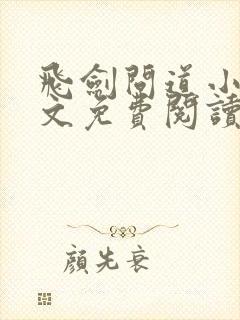 飛劍問道小
文免費閱讀
顏先衰